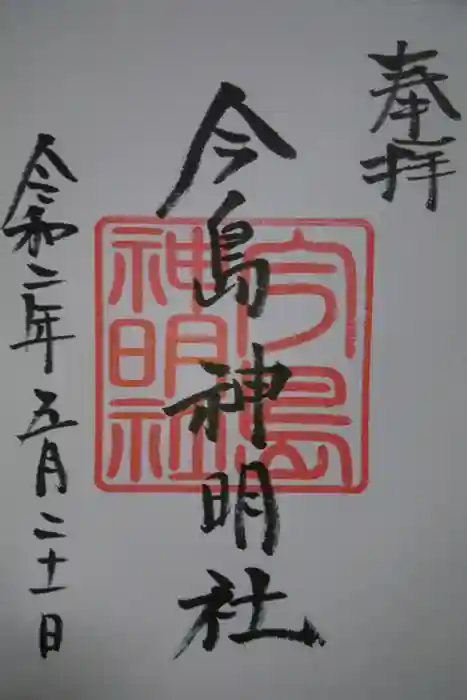 奉拝
今島神明社
今島神明社
令和二年五月二十一日